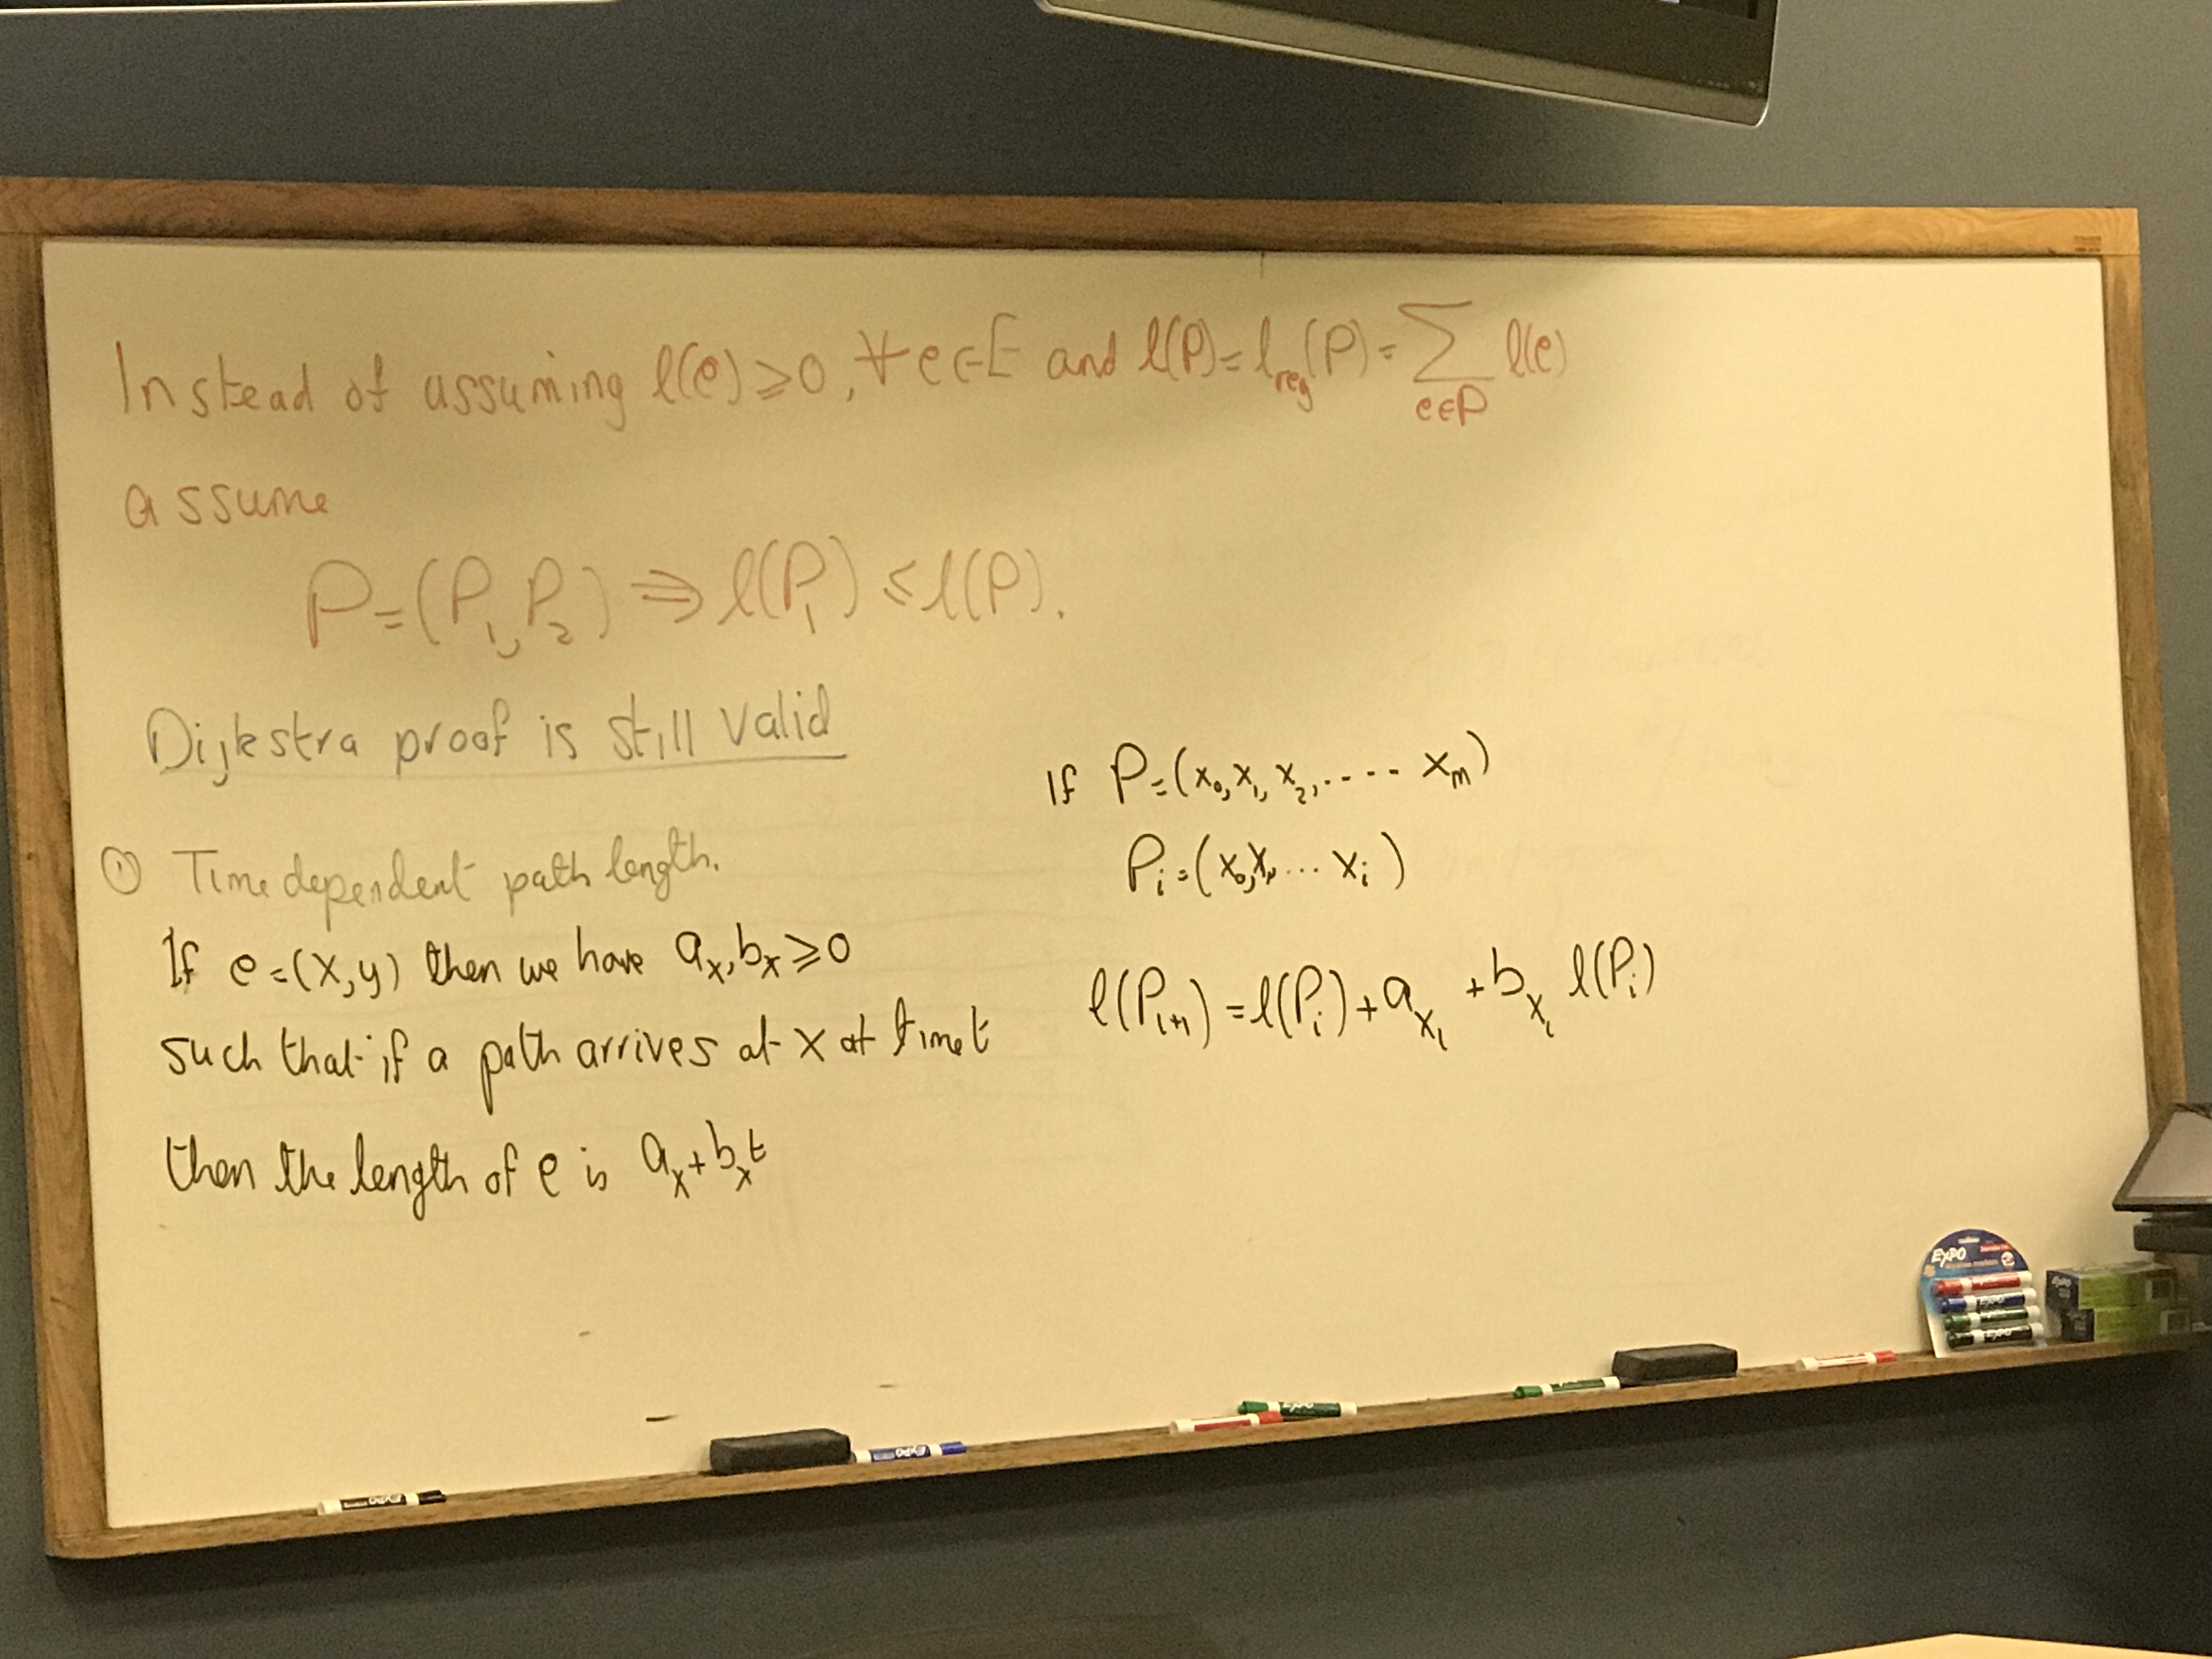 Instead of assuming l(e) ≥ 0, ∀ e ∈ E and l(P) = l_reg(P) = ∑_{e∈P} l(e)
assume
P = (P₁, P₂) ⇒ l(P₁) ≤ l(P).
Dijkstra proof is still valid
① Time dependent path length.
If e = (x, y) then we have a_x, b_x ≥ 0
such that if a path arrives at x at time t
then the length of e is a_x + b_x t
If P = (x₀, x₁, x₂, ----- x_m)
P_i = (x₀, x₁, ... x_i)
l(P_{i+1}) = l(P_i) + a_{x_i} + b_{x_i} l(P_i)
EXPO